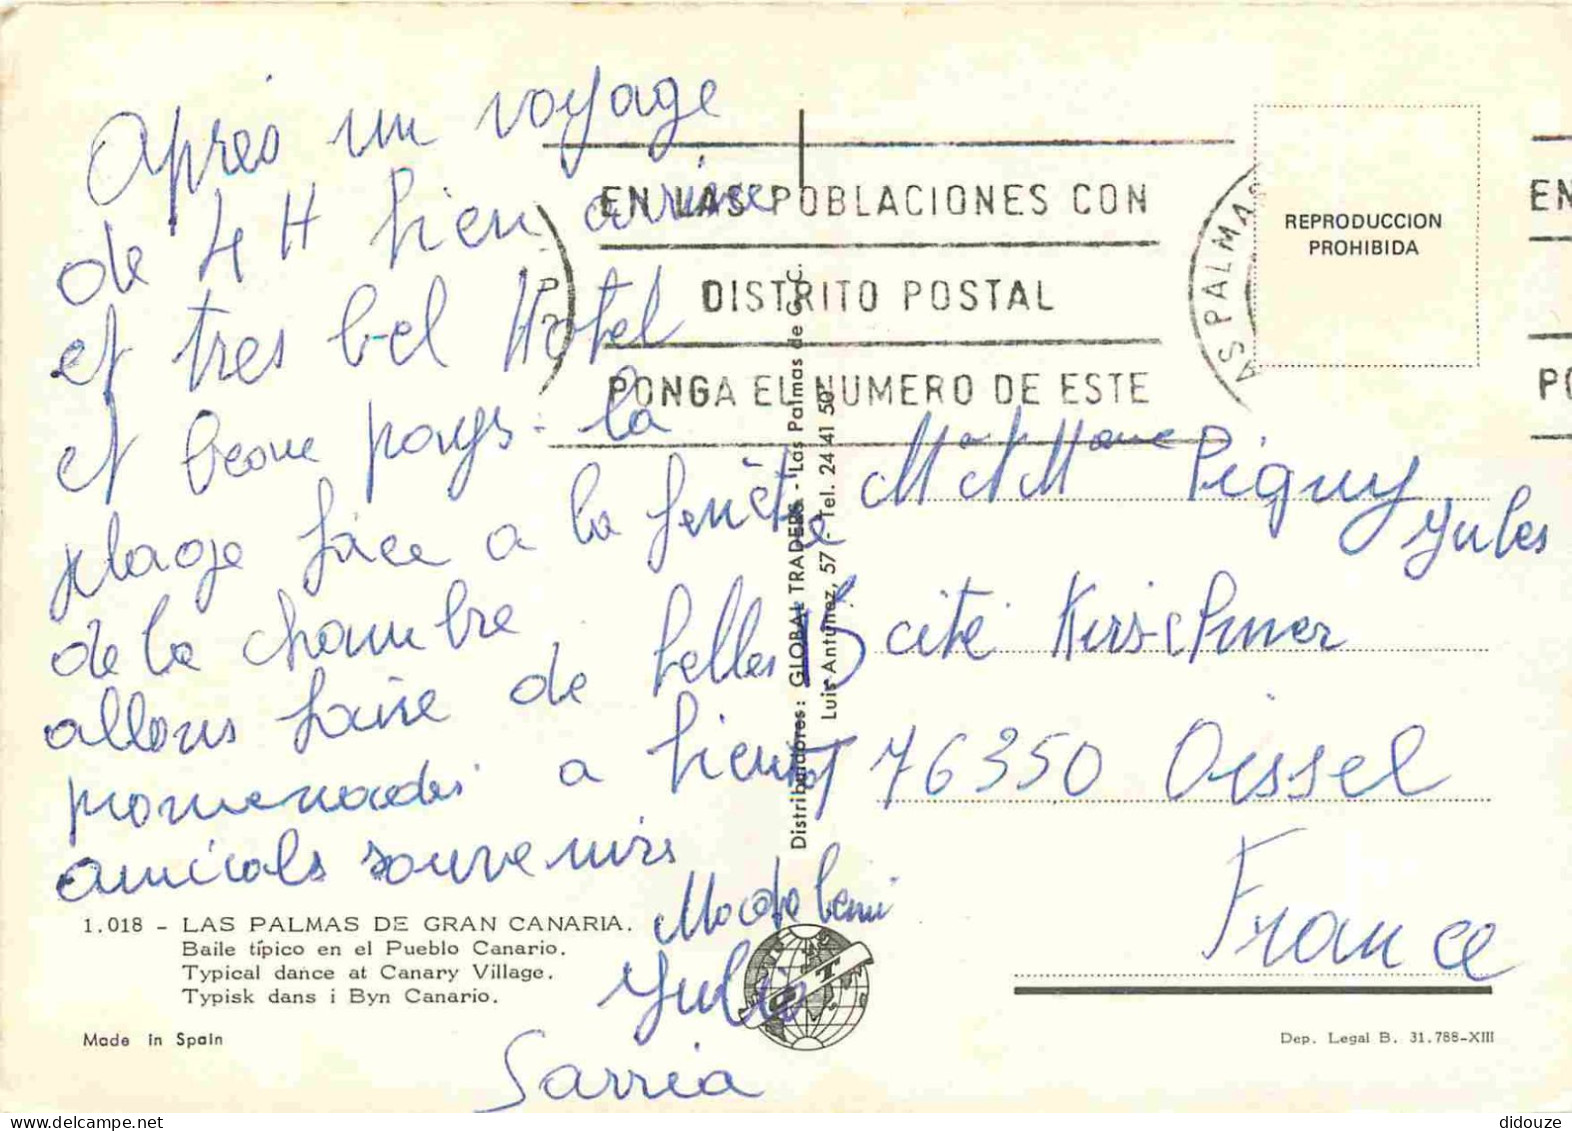 Après un voyage
de 4 H bien arrivée
et tres bel Hotel
et beau pays - la
plage face a la fenêtre
de la chambre
allons faire de belles
promenades a bientot
amicals souvenirs
Julio
Sarria
1.018 - LAS PALMAS DE GRAN CANARIA.
Baile típico en el Pueblo Canario.
Typical dance at Canary Village.
Typisk dans i Byn Canario.
Made in Spain
EN LAS POBLACIONES CON
DISTRITO POSTAL
PONGA EL NUMERO DE ESTE
AS PALMAS
EN
PO
REPRODUCCION
PROHIBIDA
Distribuidores: GLOBAL TRADERS - Las Palmas de G. C.
Luis Antunez, 57 - Tel. 24 41 50
GT
Mr et Mme Piguy
Jules
15 cité Kirschner
76350 Oissel
France
Dep. Legal B. 31.788-XIII
didouze